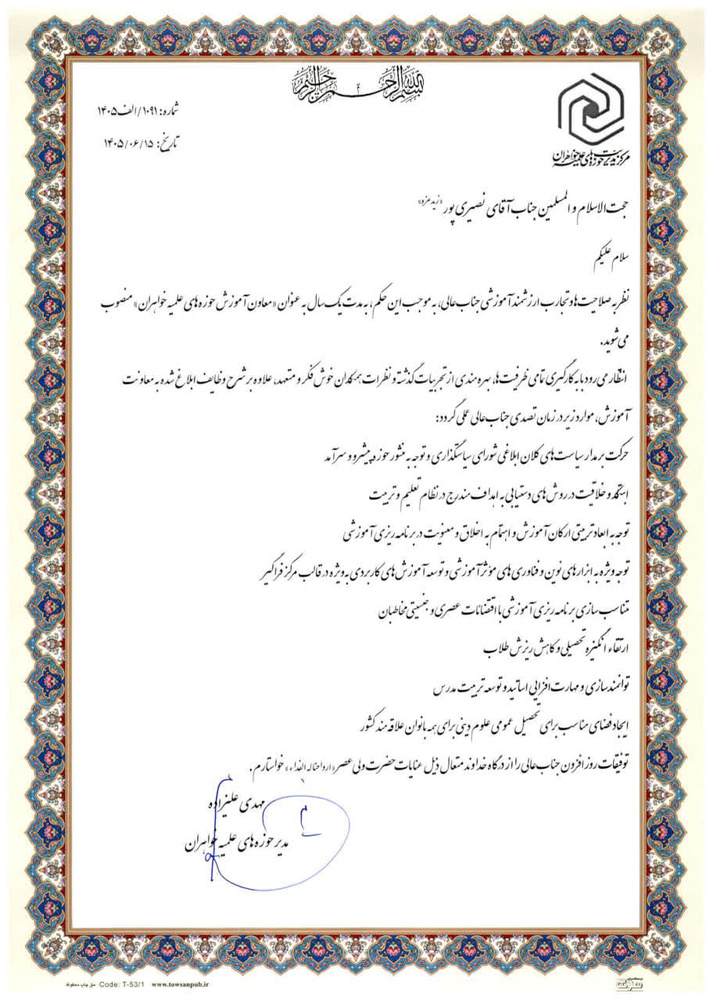 بسم الله الرحمن الرحیم
مرکز مدیریت حوزه‌های علمیه خواهران
شماره: ۱۰۹۱/الف۱۴۰۵
تاریخ: ۱۴۰۵/۰۶/۱۵
حجت الاسلام و المسلمین جناب آقای نصیری پور «زید عزه»
سلام علیکم
نظر به صلاحیت‌ها و تجارب ارزشمند آموزشی جناب عالی، به موجب این حکم، به مدت یک سال به عنوان «معاون آموزش حوزه‌های علمیه خواهران» منصوب
می‌شوید.
انتظار می‌رود با به کارگیری تمامی ظرفیت‌ها، بهره مندی از تجربیات گذشته و نظرات همکاران خوش فکر و متعهد، علاوه بر شرح وظایف ابلاغ شده به معاونت
آموزش، موارد زیر در زمان تصدی جناب عالی عملی گردد:
حرکت بر مدار سیاست‌های کلان ابلاغی شورای سیاستگذاری و توجه به منشور حوزه پیشرو و سرآمد
ابتکار و خلاقیت در روش‌های دستیابی به اهداف مندرج در نظام تعلیم و تربیت
توجه به ابعاد تربیتی ارکان آموزش و اهتمام به اخلاق و معنویت در برنامه ریزی آموزشی
توجه ویژه به ابزارهای نوین و فناوری‌های مؤثر آموزشی و توسعه آموزش‌های کاربردی به ویژه در قالب مرکز فراگیر
متناسب سازی برنامه ریزی آموزشی با اقتضائات عصری و جنسیتی مخاطبان
ارتقاء انگیزه تحصیلی و کاهش ریزش طلاب
توانمندسازی و مهارت افزایی اساتید و توسعه تربیت مدرس
ایجاد فضای مناسب برای تحصیل عمومی علوم دینی برای همه بانوان علاقه مند کشور
توفیقات روز افزون جناب عالی را از درگاه خداوند متعال ذیل عنایات حضرت ولی عصر «ارواحنا له الفداء» خواستارم.
مهدی علیزاده
مدیر حوزه‌های علمیه خواهران
حق چاپ محفوظ Code: T-53/1 www.towsanpub.ir